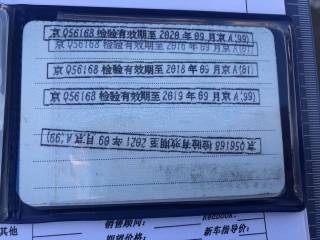 京Q56168 检验有效期至 2020 年 09 月京A(99)
京Q56168 检验有效期至 2016 年 09 月京A(01)
京Q56168 检验有效期至 2018 年 09 月京A(01)
京Q56168 检验有效期至 2019 年 09 月京A(99)
京Q56168 检验有效期至 2021 年 09 月京A(99)
其他
销售顾问:
期望价格:
新车指导价: